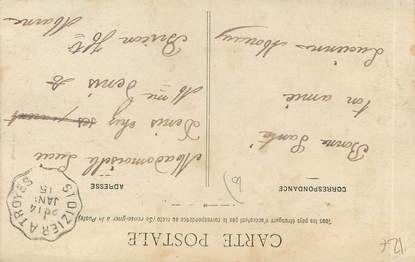 CARTE POSTALE
Tous les pays étrangers n'acceptent pas la correspondance au recto (Se renseigner à la Poste)
CORRESPONDANCE
ADRESSE
Bonne Santé
ton amie
Lucienne
Mademoiselle Lucie
Denis chez
Mme Denis
Bricon Hte
Marne
ST DIZIER A TROYES
2E 14
JANV
15